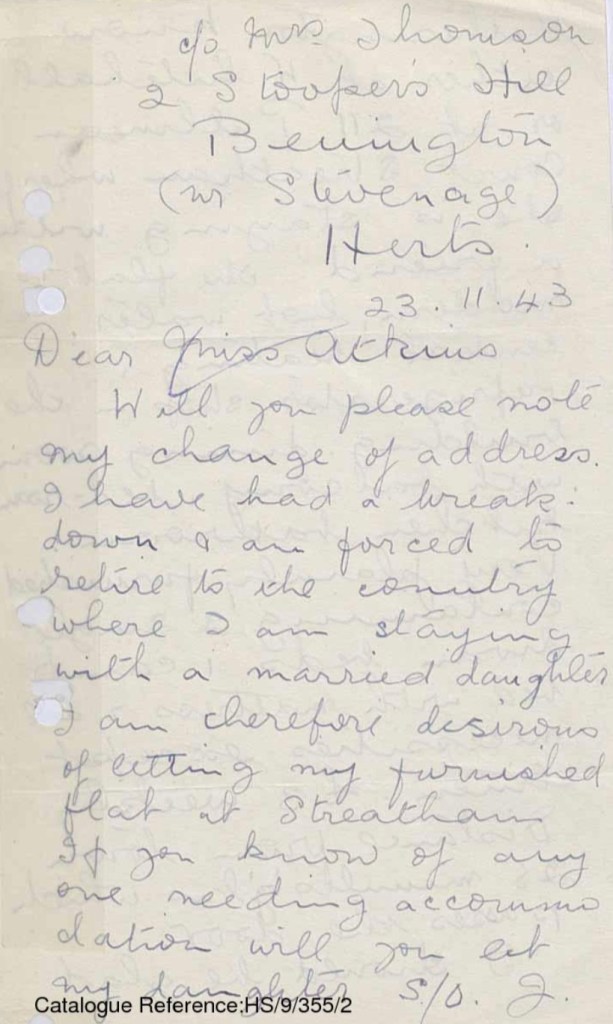 c/o Mrs Thomson
2 Stooper's Hill
Benington
(nr Stevenage)
Herts.
23.11.43
Dear Miss Atkins
Will you please note
my change of address.
I have had a break-
down & am forced to
retire to the country
where I am staying
with a married daughter
I am therefore desirous
of letting my furnished
flat at Streatham
If you know of any
one needing accommo
dation will you let
my daughter S/O. J.
Catalogue Reference:HS/9/355/2